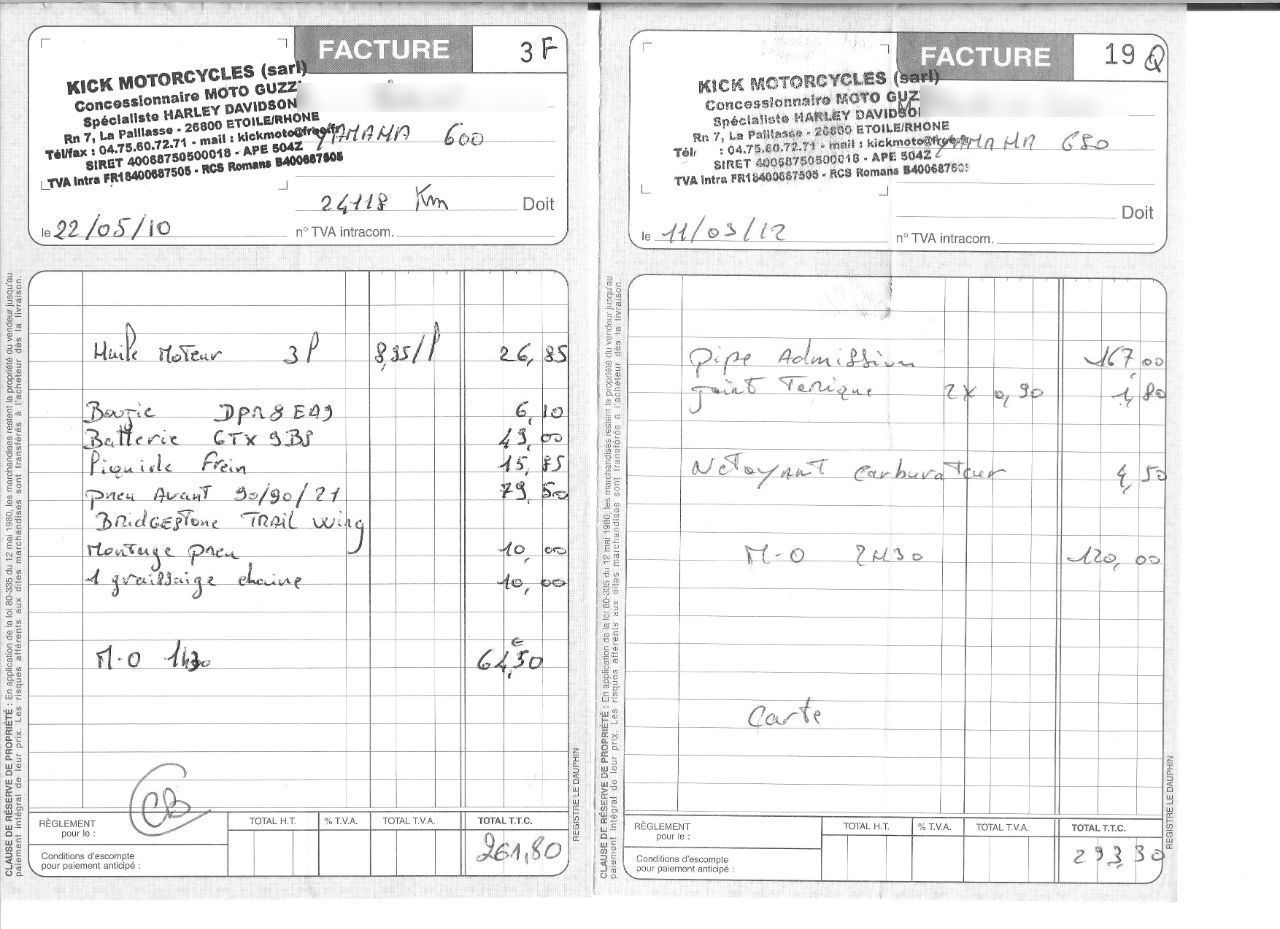 FACTURE
3F
KICK MOTORCYCLES (sarl)
Concessionnaire MOTO GUZZ
Spécialiste HARLEY DAVIDSON
Rn 7, La Paillasse - 26800 ETOILE/RHONE
Tél/fax : 04.75.60.72.71 - mail : kickmoto@free.fr
SIRET 40068750500018 - APE 504Z
TVA Intra FR18400687505 - RCS Romans B400687505
YAMAHA 600
24118 Km
Doit
le 22/05/10
n° TVA intracom.
Huile Moteur 3l 8,95/l 26,85
Bougie DPR8EA9 6,10
Batterie GTX 9BS 49,00
Liquide Frein 15,85
pneu Avant 90/90/21 79,50
BRIDGESTONE TRAIL Wing
Montage pneu 10,00
1 graissaige chaine 10,00
M-O 1H30 64,50
€
CB
RÈGLEMENT
pour le :
Conditions d'escompte
pour paiement anticipé :
TOTAL H.T.
% T.V.A.
TOTAL T.V.A.
TOTAL T.T.C.
261,80
CLAUSE DE RÉSERVE DE PROPRIÉTÉ : En application de la loi 80-335 du 12 mai 1980, les marchandises restent la propriété du vendeur jusqu'au
paiement intégral de leur prix. Les risques afférents aux dites marchandises sont transférés à l'acheteur dès la livraison.
REGISTRE LE DAUPHIN
FACTURE
19 Q
KICK MOTORCYCLES (sarl)
Concessionnaire MOTO GUZ
Spécialiste HARLEY DAVIDSO
Rn 7, La Paillasse - 26800 ETOILE/RHONE
Tél : 04.75.60.72.71 - mail : kickmoto@free.fr
SIRET 40068750500018 - APE 504Z
TVA Intra FR18400687505 - RCS Romans B40068750
YAMAHA 600
Doit
le 11/03/12
n° TVA intracom.
pipe Admission 167,00
joint Torique 2X 0,90 1,80
Netoyant carburateur 4,50
M-O 2H30 120,00
Carte
RÈGLEMENT
pour le :
Conditions d'escompte
pour paiement anticipé :
TOTAL H.T.
% T.V.A.
TOTAL T.V.A.
TOTAL T.T.C.
293,30
CLAUSE DE RÉSERVE DE PROPRIÉTÉ : En application de la loi 80-335 du 12 mai 1980, les marchandises restent la propriété du vendeur jusqu'au
paiement intégral de leur prix. Les risques afférents aux dites marchandises sont transférés à l'acheteur dès la livraison.
REGISTRE LE DAUPHIN